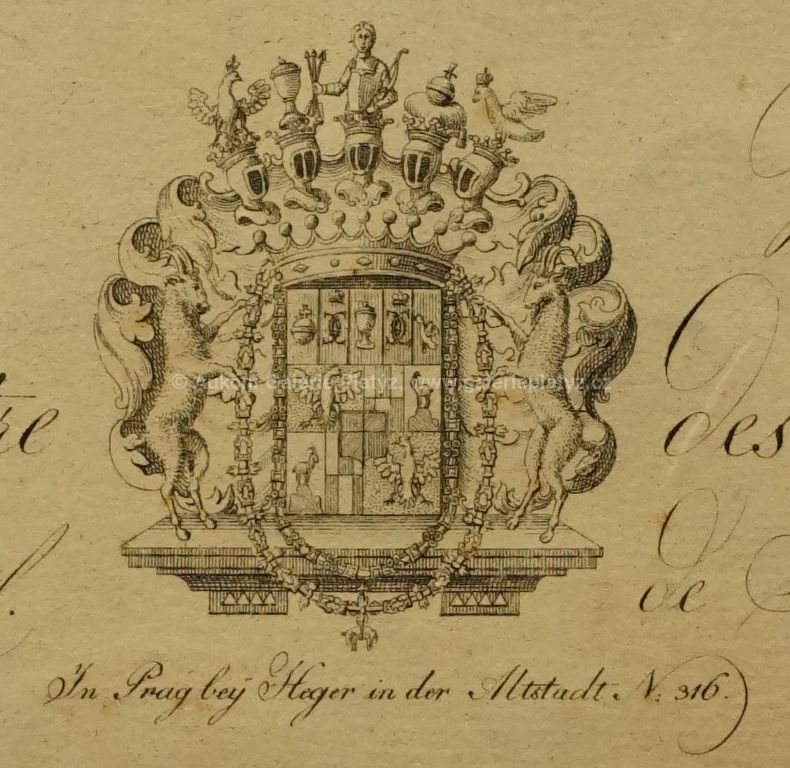 © Aukční Galerie Platýz, www.galerieplatyz.cz
des
de
In Prag beÿ Heger in der Altstadt N: 316.